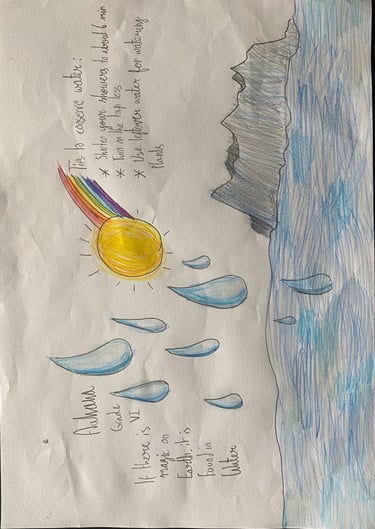 Grade
VI
If there is
magic on
Earth, it is
found in
Water
Tips to conserve water:
* Shorter your showers to about 6 min
* Turn on the tap less
* Use leftover water for watering
plants